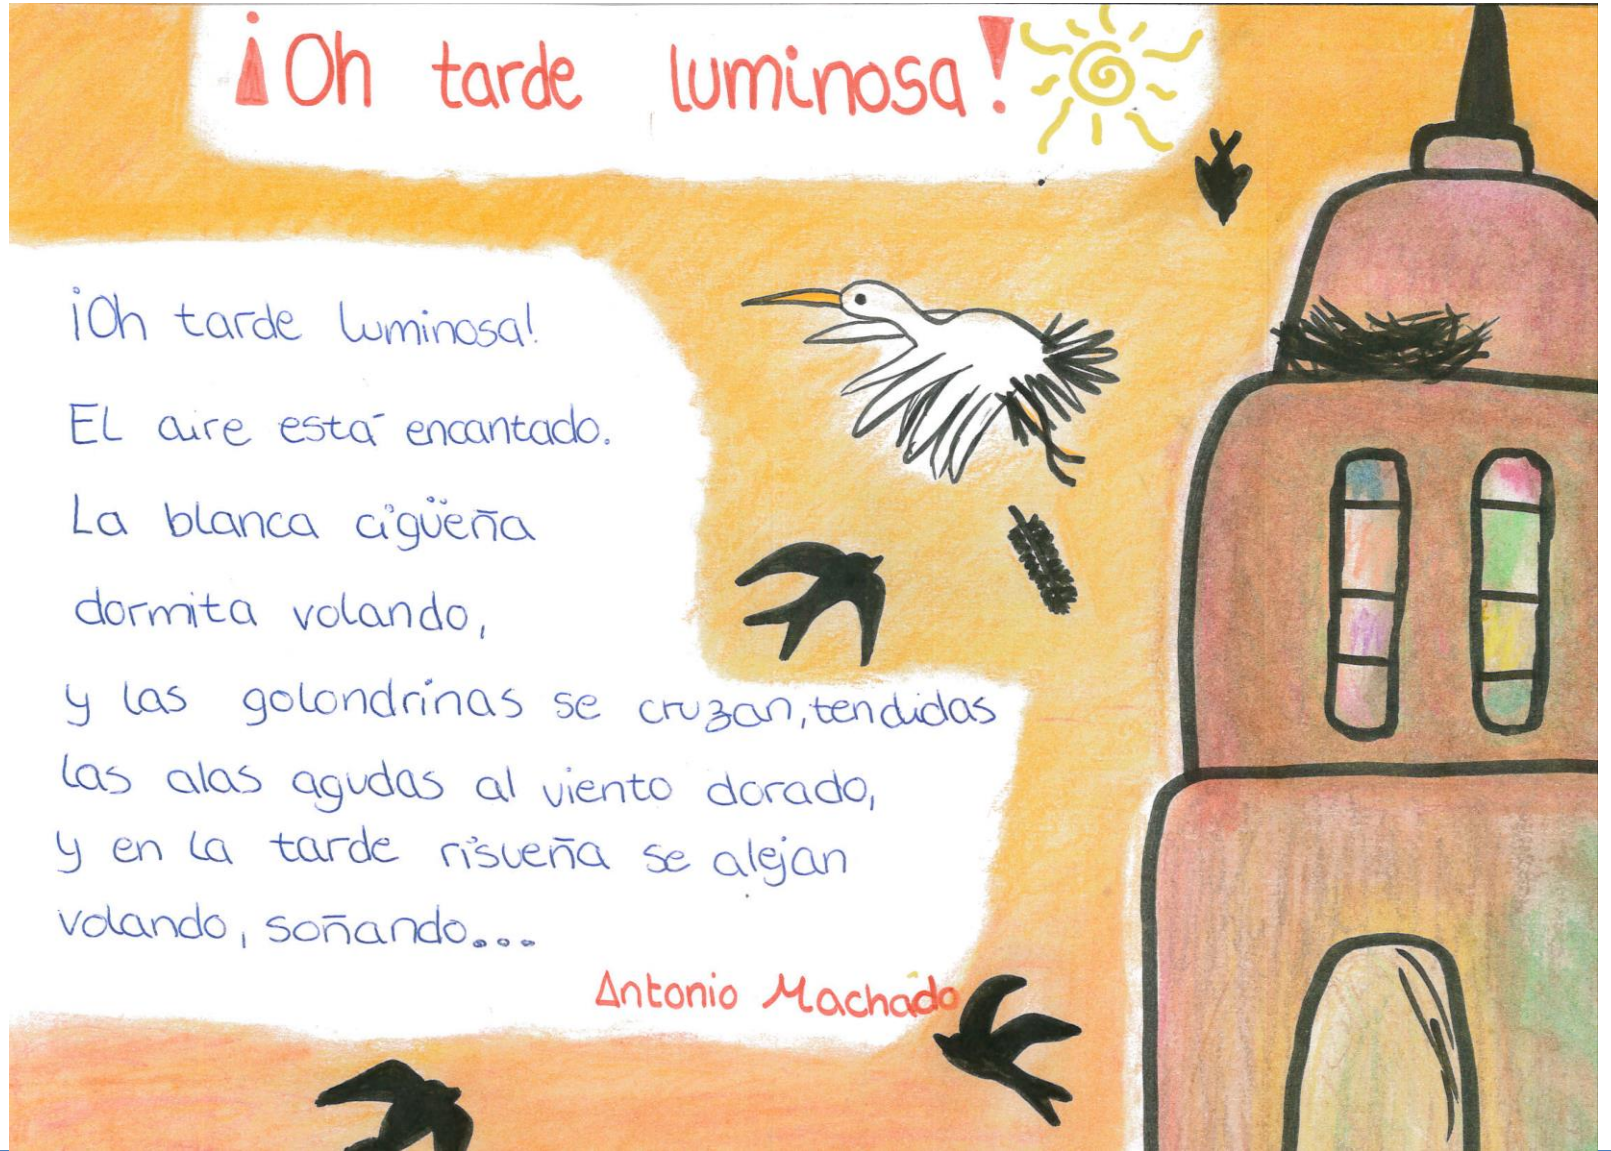 ¡Oh tarde luminosa!
¡Oh tarde luminosa!
El aire está encantado.
La blanca cigüeña
dormita volando,
y las golondrinas se cruzan, tendidas
las alas agudas al viento dorado,
y en la tarde risueña se alejan
volando, soñando...
Antonio Machado